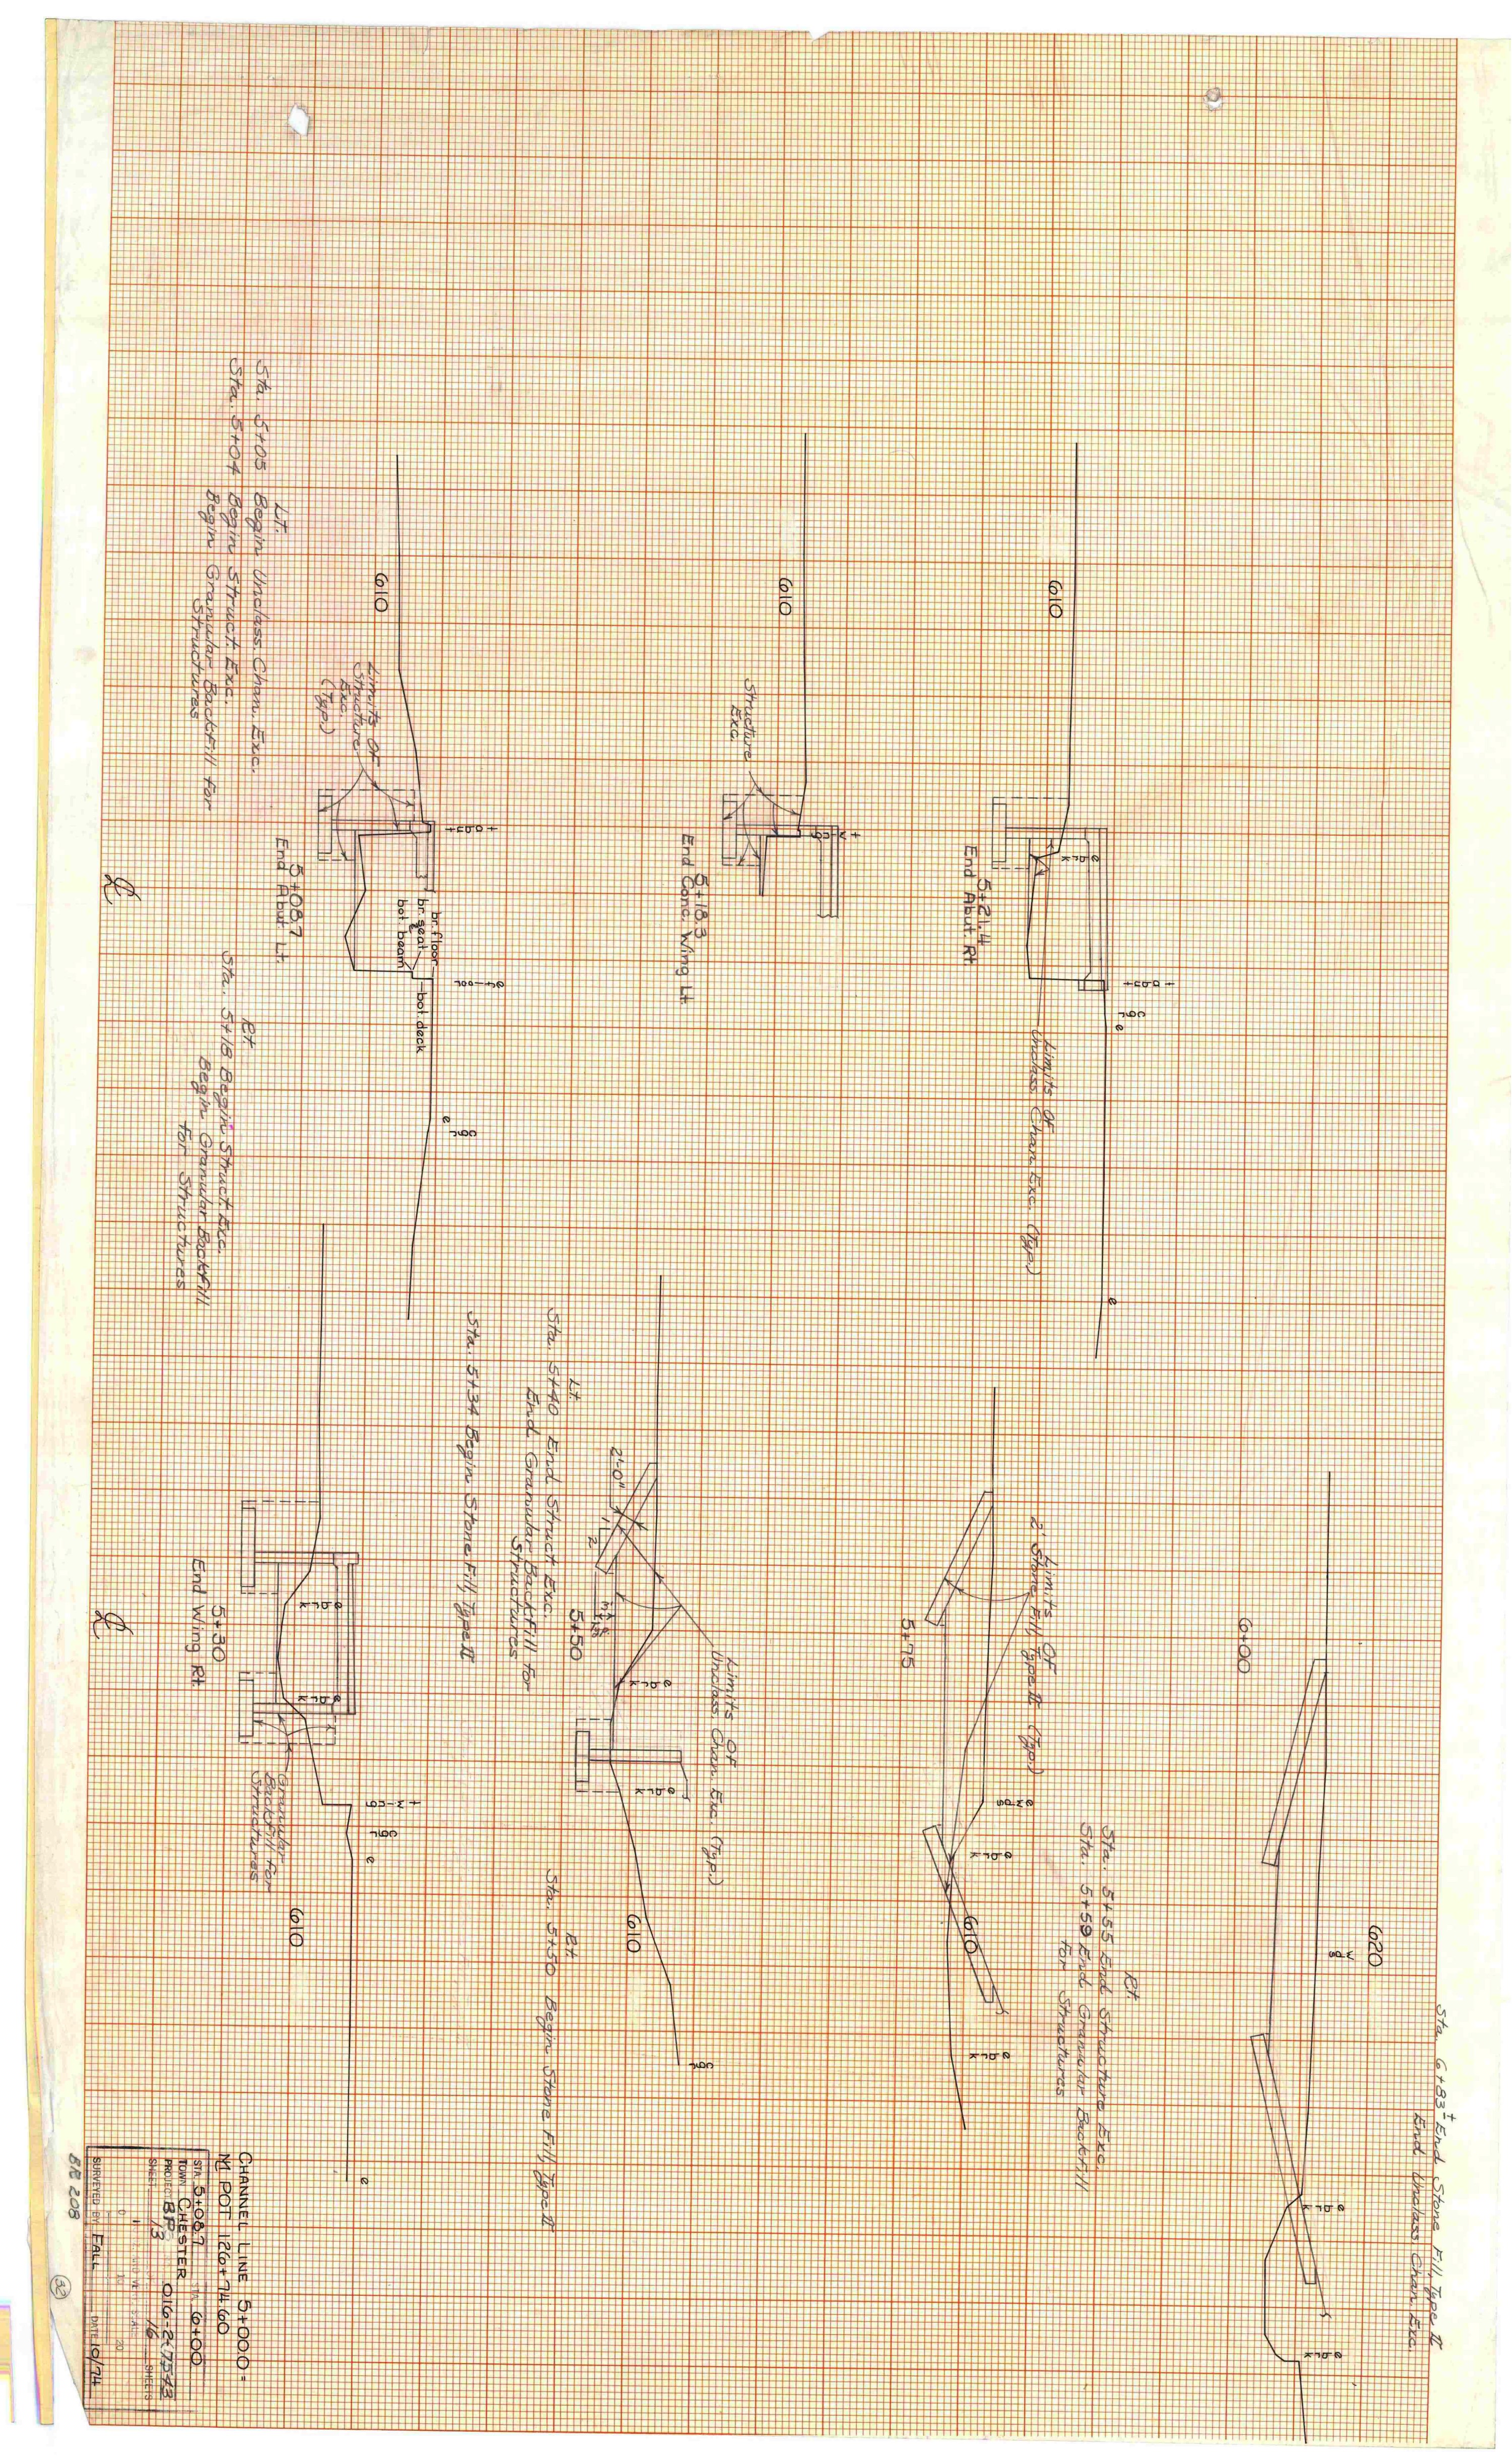 Sta. 6+83± End Stone Fill, Type II
End Unclass. Chan. Exc.
620
w
dg
e brk
e brk
6+00
Rt.
Sta. 5+55 End Structure Exc.
Sta. 5+59 End Granular Backfill
for Structures
Limits Of
2' Stone Fill, Type II (Typ.)
e wdg
e brk
610
e brk
5+75
Limits Of
Unclass. Chan. Exc. (Typ.)
2'-0"
1
2
e brk
e brk
610
cgr
5+50
Lt.
Sta. 5+40 End Struct. Exc.
End Granular Backfill for
Structures
Rt.
Sta. 5+50 Begin Stone Fill, Type II
Sta. 5+34 Begin Stone Fill, Type II
e brk
e brk
t w-cg
cgr
e
610
e
Granular
Backfill for
Structures
5+30
End Wing Rt.
℄
610
e brk
t abut
cgr
e
e
Limits Of
Unclass. Chan. Exc. (Typ.)
5+21.4
End Abut. Rt.
610
Structure
Exc.
t w-cg
5+18.3
End Conc. Wing Lt.
610
Limits Of
Structure
Exc.
(Typ.)
t abut
br. floor
br. seat
bot. beam
bot. deck
e
cgr
5+08.7
End Abut. Lt.
Lt.
Sta. 5+05 Begin Unclass. Chan. Exc.
Sta. 5+04 Begin Struct. Exc.
Begin Granular Backfill for
Structures
Rt.
Sta. 5+18 Begin Struct. Exc.
Begin Granular Backfill
for Structures
℄
CHANNEL LINE 5+00.0 =
M POT 126+74.60
STA. 5+08.7 STA. 6+00
TOWN CHESTER
PROJECT BRS 016-2(7543
SHEET 13 16 SHEETS
0 10 20
SURVEYED BY FALL DATE 10/74
BR 208
32